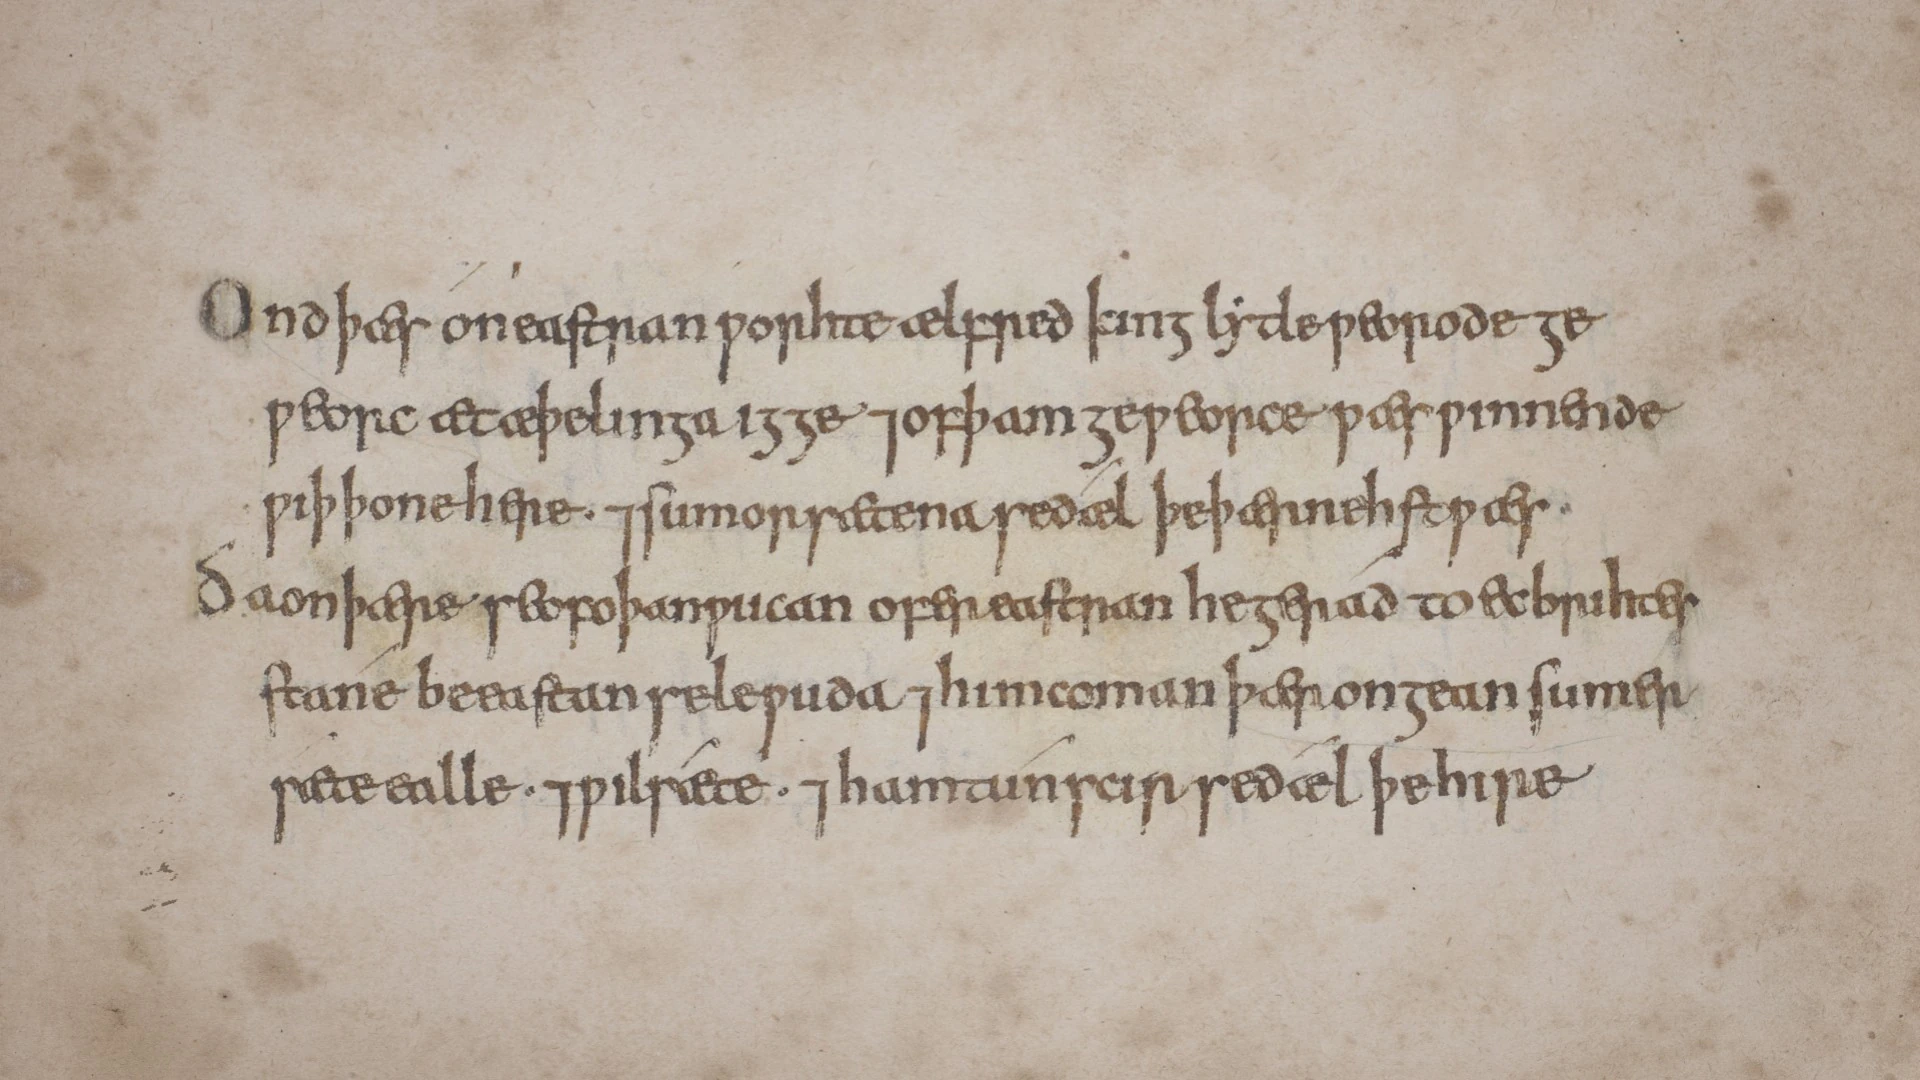 Ond þæs on eastran ƿorhte ælfred king lytle ƿeorode ge
ƿeorc æt æþelinga igge ⁊ of þam geƿeorce ƿæs ƿinnende
ƿiþ þone here · ⁊ sumorsætena se dæl þe þær niehst ƿæs ·
Ða on þære seofoþan ƿucan ofer eastran he gerad to ecbrihtes
stane be eastan sele ƿuda ⁊ him coman þær ongean sumer
sæte ealle · ⁊ ƿilsæte · ⁊ hamtunscir se dæl þe hire